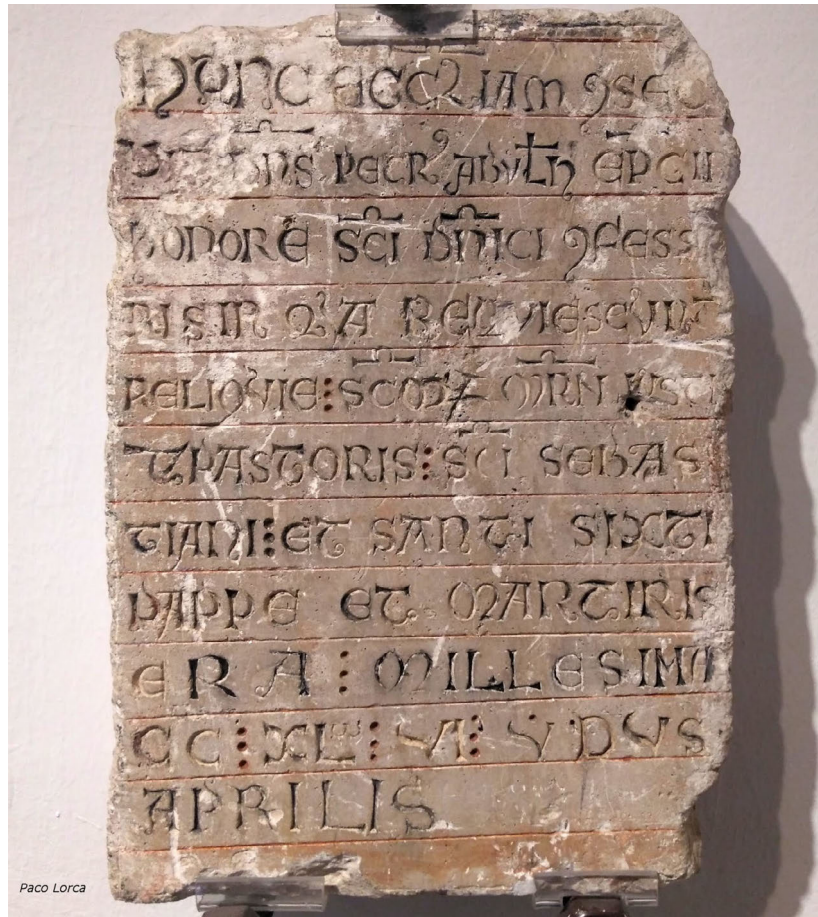 HUNC ECCLIAM ꝯSEC
DNS PETRꝰ ABULN EPC IN
HONORE SCI DNICI ꝯFESSO
RIS IN QA REQUIESCUNT
RELIQUIE⁝SCORꝜ MRN IUSTI
ET PASTORIS⁝SCI SEBAS
TIANI⁝ET SANTI SIXTI
PAPPE ET MARTIRIS
ERA⁝MILLESIMA
CC⁝XL⁝VI⁝V YDUS
APRILIS
Paco Lorca